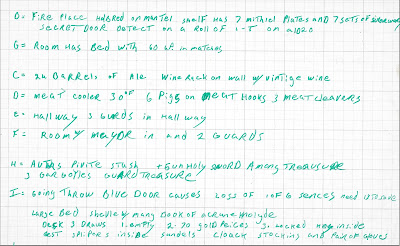 D = Fire Place on mantel shelf has 7 mithiel Plates and 7 sets of
secret Door Detect on a Roll of 1-5 on a D20
G = Room Has Bed with 60 GP in matress
C = 24 Barrels of Ale Wine Rack on wall w/ vintige wine
D = meat cooler 30° 6 Pigs on meat Hooks 3 meat cleavers
E = Hallway 3 Gurds in Hallway
F = Room mayor in and 2 Guards
H = stash Holy sword Among Treasure
3 Gargoyles Guard Treasure
I = Going Throw Blue Door causes Loss of 1 of 6 sences need to save
Large Bed shelve many Book of
Desk 3 Draws 1. empty 2. 20 gold Peices 3. Locked inside
slippers inside sandels cloack stocking and Pair of gloves